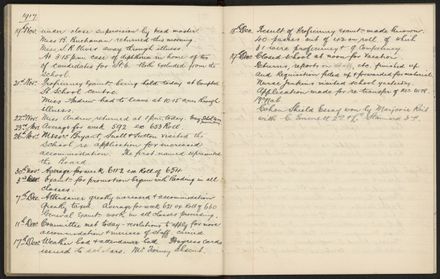 1917.
19th Nov. under close supervision by head master
Miss B. Buchanan returned this morning
Miss J. K. away through illness
At 3.15 pm case of diphtheria in home of two
of classes for S.P.6. Both excluded from the
School.
21st Nov. Proficiency Examt. being held today at Campbell
St School centre.
Miss Andrew had to leave at 10.15 am through
illness.
22nd Nov. Miss Andrew returned at 1 pm today.
23rd Nov. Average for week 592 on 653 Roll
26th Nov. Messrs Bryant, Snell & visited the
School re application for increased
accommodation. The first named represented
the Board.
30th Nov. Average for week 611.2 on Roll of 654
3rd Dec. Examt. for promotion began with Reading in all
classes.
7th Dec. Attendance greatly increased & accommodation
greatly taxed. Average for week 621 on Roll of 660
General Examt. work in all classes promising.
11th Dec. Committee met today – resolutions to apply for more
accommodation & increase of staff carried
17th Dec. Weather bad & attendance bad. Progress cards
issued to scholars. Mr absent.
18th Dec. Result of Proficiency Examt. made known
40 passes out of 42 on roll, of which
31 were proficiency & 9 Competency.
19th Dec. Closed school at noon for Vacation.
Returns, reports on staff etc. finished up
and Requisition filled up & forwarded for material
Nurse Jenkins visited school yesterday.
Application made for re-transfer of Mr W. H.
McNab.
Cohen Shield Essay won by Marjorie Kirk
with C. 2nd of Standard 5